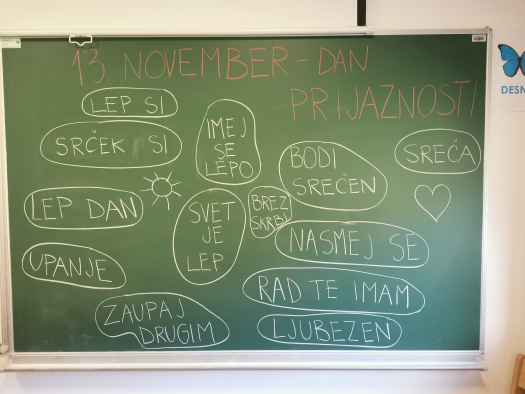 13. NOVEMBER - DAN
PRIJAZNOSTI
LEP SI
SRČEK SI
IMEJ
SE
LEPO
BODI
SREČEN
SREČA
LEP DAN
SVET
JE
LEP
BREZ
SKRBI
NASMEJ SE
UPANJE
RAD TE IMAM
ZAUPAJ
DRUGIM
LJUBEZEN
DESN